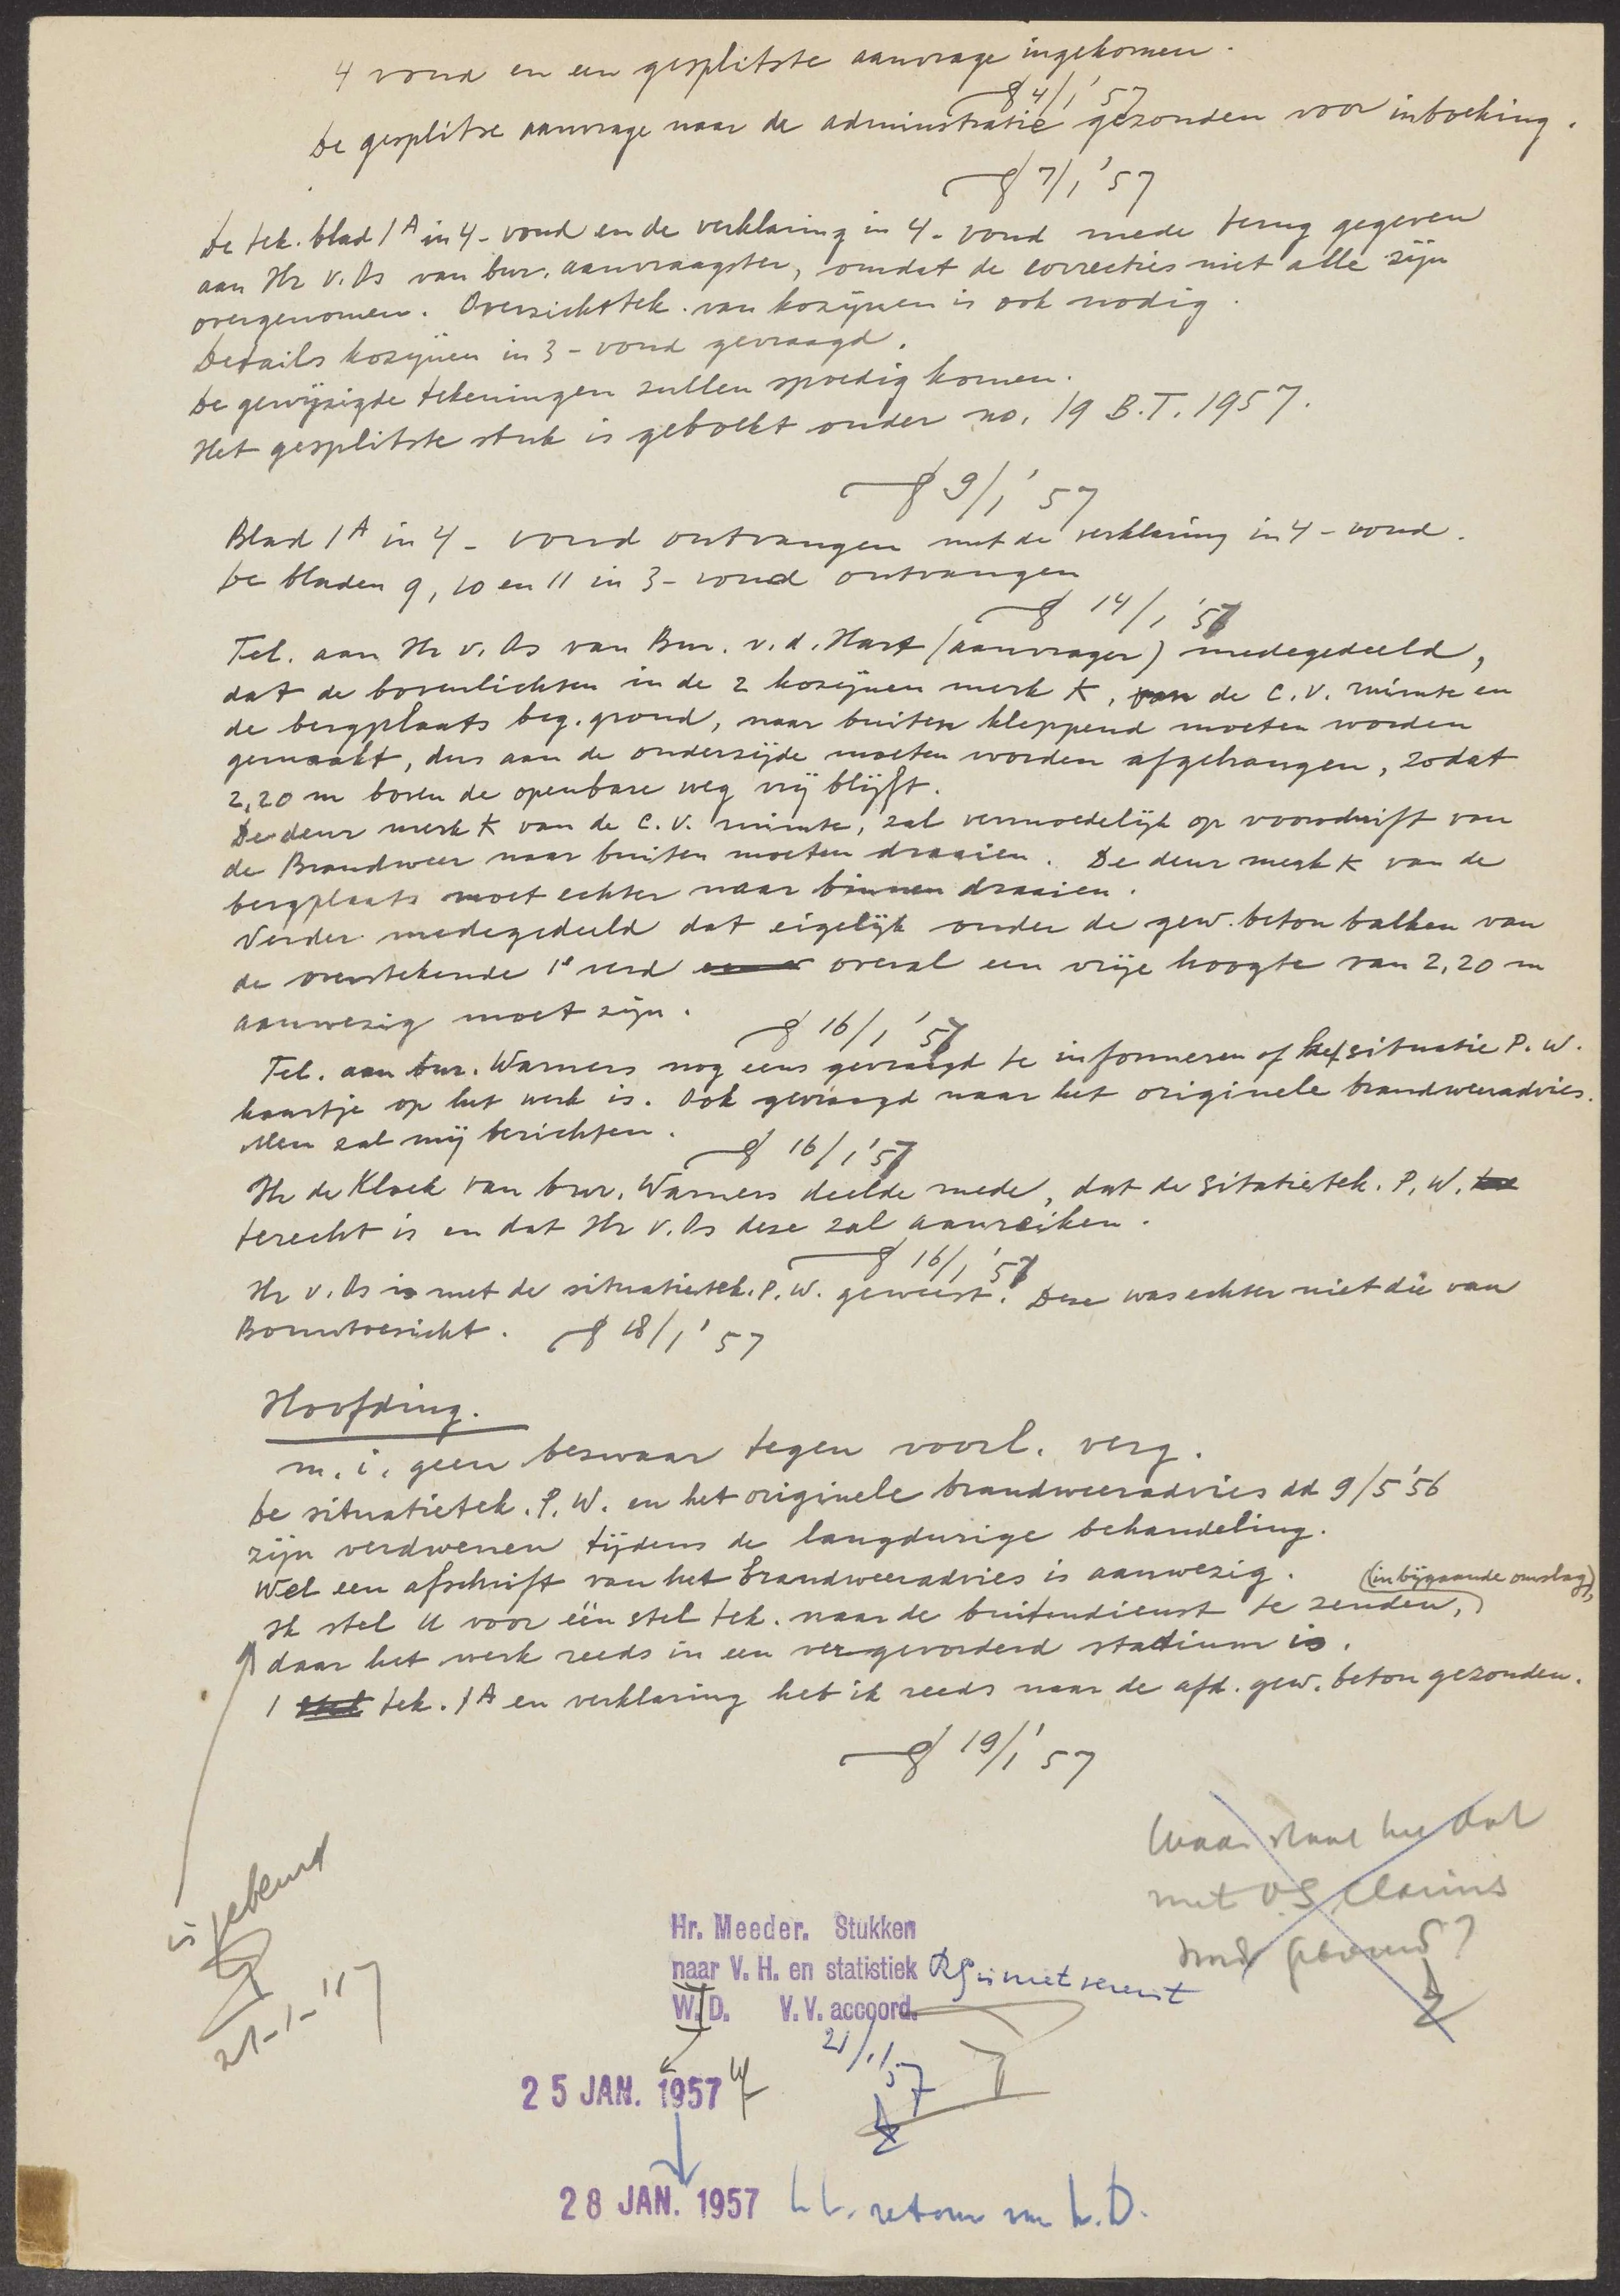 4 voud en een gesplitste aanvrage ingekomen.
4/1 '57
De gesplitse aanvrage naar de administratie gezonden voor inboeking.
7/1 '57
De tek. blad 1A in 4-voud en de verklaring in 4-voud mede terug gegeven
aan Hr v. Os van bur. aanvraagster, omdat de correcties niet alle zijn
overgenomen. Overzichttek. van kozijnen is ook nodig.
Details kozijnen in 3-voud gevraagd.
De gewijzigde tekeningen zullen spoedig komen.
Het gesplitste stuk is geboekt onder no. 19 B.T. 1957.
9/1 '57
Blad 1A in 4-voud ontvangen met de verklaring in 4-voud.
De bladen 9, 10 en 11 in 3-voud ontvangen
14/1 '57
Tel. aan Hr v. Os van Bur. v. d. Hart (aanvrager) medegedeeld,
dat de bovenlichten in de 2 kozijnen merk K, van de C.V. ruimte en
de bergplaats beg. grond, naar buiten kleppend moeten worden
gemaakt, dus aan de onderzijde moeten worden afgehangen, zodat
2,20 m boven de openbare weg vrij blijft.
De deur merk K van de C.V. ruimte, zal vermoedelijk op voorschrift van
de Brandweer naar buiten moeten draaien. De deur merk K van de
bergplaats moet echter naar binnen draaien.
Verder medegedeeld dat eigelijk onder de gew. beton balken van
de overstekende 1e verd overal een vrije hoogte van 2,20 m
aanwezig moet zijn.
16/1 '57
Tel. aan bur. Warners nog eens gevraagd te informeren of het situatie P.W.
kaartje op het werk is. Ook gevraagd naar het originele brandweeradvies.
Men zal mij berichten.
16/1 '57
Hr de Kloek van bur. Warners deelde mede, dat de sitatietek. P.W.
terecht is en dat Hr v. Os deze zal aanreiken.
16/1 '57
Hr v. Os is met de situatietek. P.W. geweest. Deze was echter niet die van
Bouwtoezicht. 18/1 '57
Hoofding.
m. i. geen bezwaar tegen voorl. verg.
De situatietek. P.W. en het originele brandweeradvies dd 9/5 '56
zijn verdwenen tijdens de langdurige behandeling.
Wel een afschrift van het brandweeradvies is aanwezig.
(in bijgaande omslag),
Ik stel U voor één stel tek. naar de buitendienst te zenden,
daar het werk reeds in een vergevorderd stadium is.
1 tek. 1A en verklaring heb ik reeds naar de afd. gew. beton gezonden.
19/1 '57
is gebeurd
21-1-'57
Waar staat hier dat
met
Hr. Meeder. Stukken
naar V. H. en statistiek
W. D. V. V. accoord.
21/1/57
25 JAN. 1957
28 JAN. 1957 retour